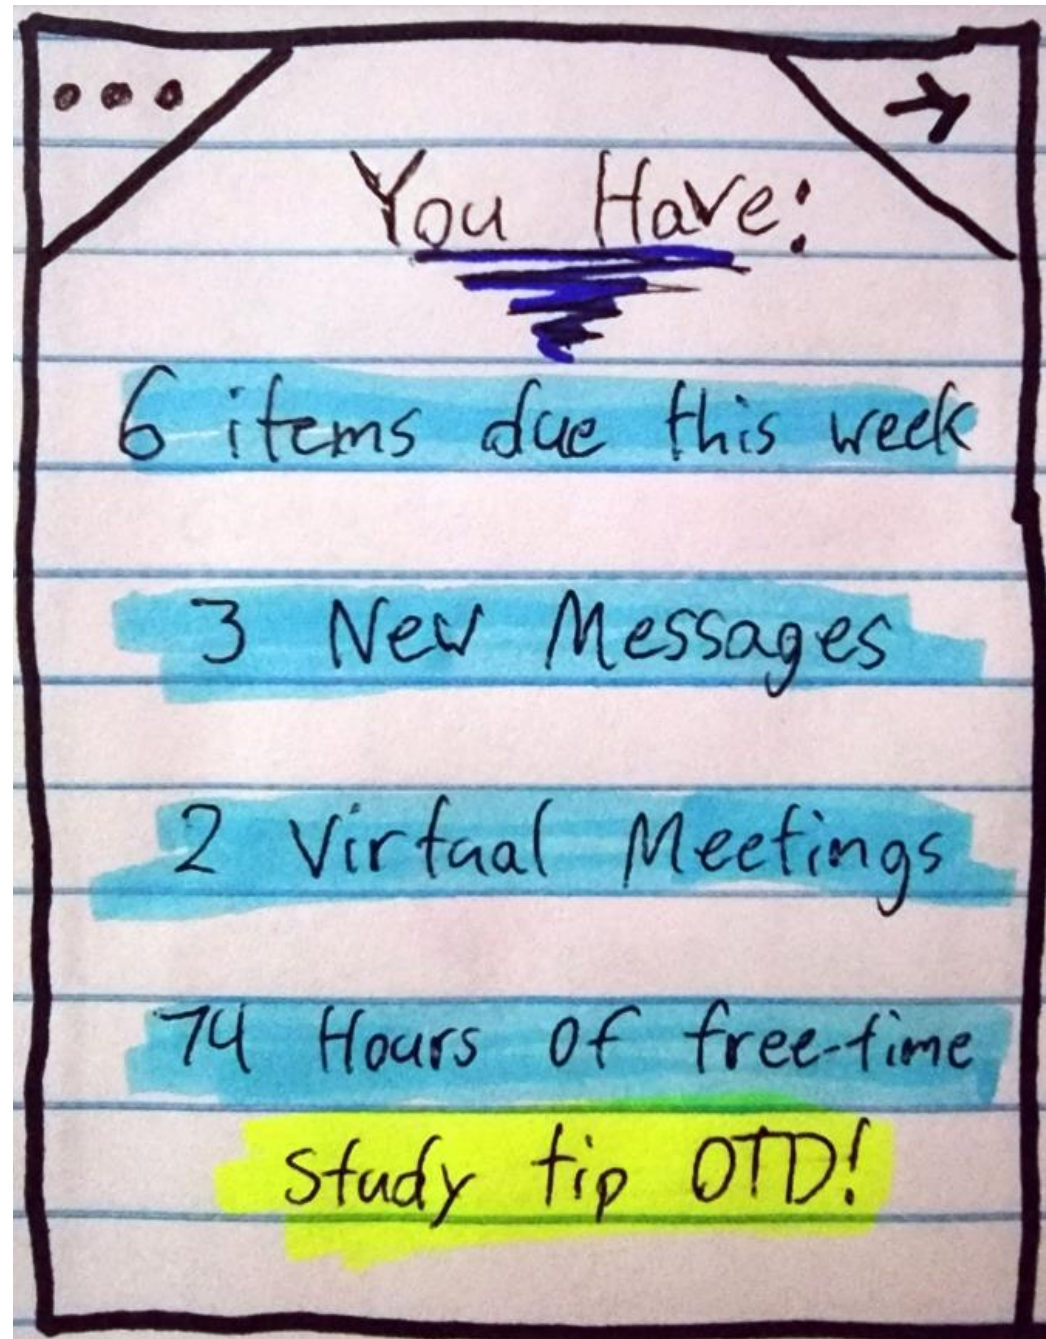 You Have:
6 items due this week
3 New Messages
2 Virtual Meetings
74 Hours of free-time
Study tip OTD!